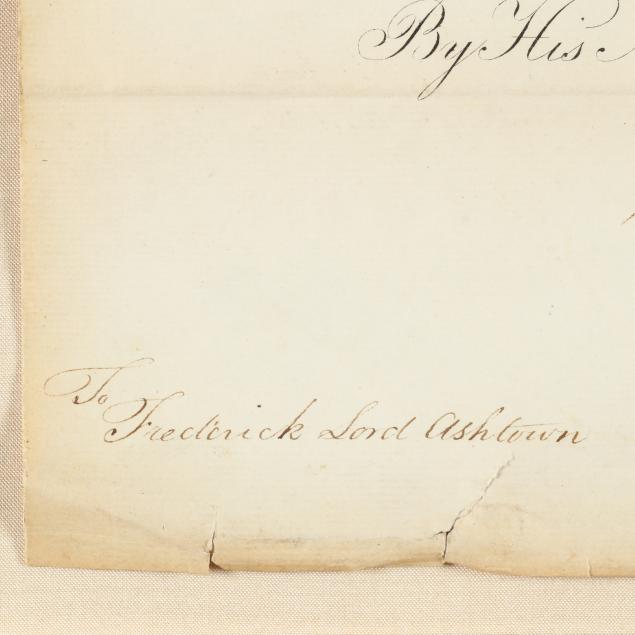 By His
To
Frederick Lord Ashtown